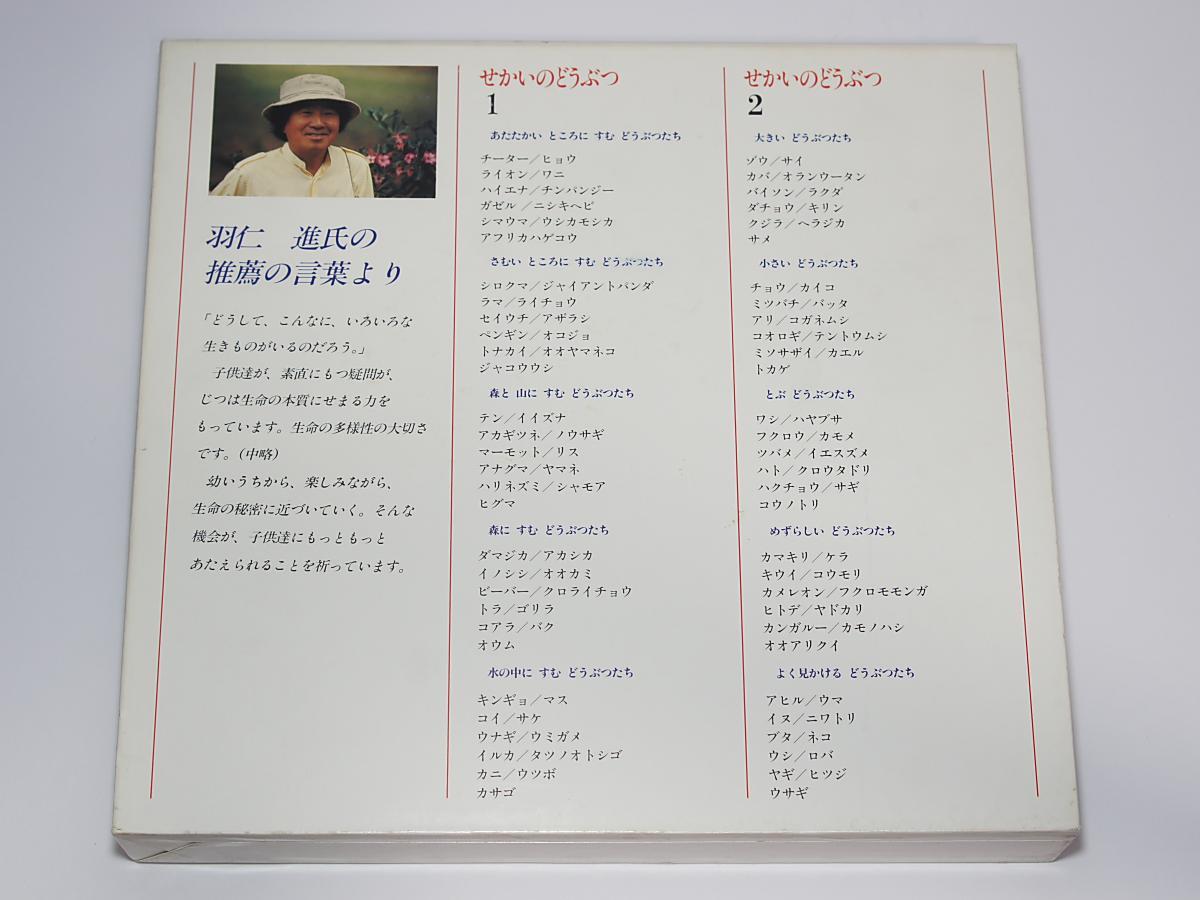 羽仁　進氏の
推薦の言葉より
「どうして、こんなに、いろいろな
生きものがいるのだろう。」
子供達が、素直にもつ疑問が、
じつは生命の本質にせまる力を
もっています。生命の多様性の大切さ
です。(中略)
幼いうちから、楽しみながら、
生命の秘密に近づいていく。そんな
機会が、子供達にもっともっと
あたえられることを祈っています。
せかいのどうぶつ
1
あたたかい ところに すむ どうぶつたち
チーター／ヒョウ
ライオン／ワニ
ハイエナ／チンパンジー
ガゼル／ニシキヘビ
シマウマ／ウシカモシカ
アフリカハゲコウ
さむい ところに すむ どうぶつたち
シロクマ／ジャイアントパンダ
ラマ／ライチョウ
セイウチ／アザラシ
ペンギン／オコジョ
トナカイ／オオヤマネコ
ジャコウウシ
森と 山に すむ どうぶつたち
テン／イイズナ
アカギツネ／ノウサギ
マーモット／リス
アナグマ／ヤマネ
ハリネズミ／シャモア
ヒグマ
森に すむ どうぶつたち
ダマジカ／アカシカ
イノシシ／オオカミ
ビーバー／クロライチョウ
トラ／ゴリラ
コアラ／バク
オウム
水の中に すむ どうぶつたち
キンギョ／マス
コイ／サケ
ウナギ／ウミガメ
イルカ／タツノオトシゴ
カニ／ウツボ
カサゴ
せかいのどうぶつ
2
大きい どうぶつたち
ゾウ／サイ
カバ／オランウータン
バイソン／ラクダ
ダチョウ／キリン
クジラ／ヘラジカ
サメ
小さい どうぶつたち
チョウ／カイコ
ミツバチ／バッタ
アリ／コガネムシ
コオロギ／テントウムシ
ミソサザイ／カエル
トカゲ
とぶ どうぶつたち
ワシ／ハヤブサ
フクロウ／カモメ
ツバメ／イエスズメ
ハト／クロウタドリ
ハクチョウ／サギ
コウノトリ
めずらしい どうぶつたち
カマキリ／ケラ
キウイ／コウモリ
カメレオン／フクロモモンガ
ヒトデ／ヤドカリ
カンガルー／カモノハシ
オオアリクイ
よく見かける どうぶつたち
アヒル／ウマ
イヌ／ニワトリ
ブタ／ネコ
ウシ／ロバ
ヤギ／ヒツジ
ウサギ